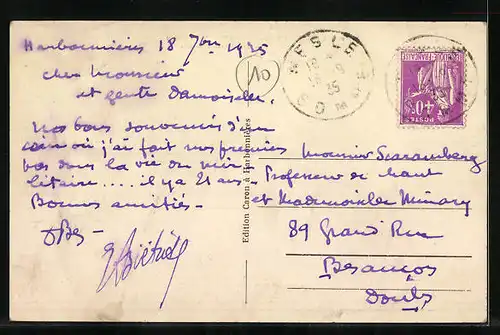 Harbonnières 18 7bre 1935
cher Monsieur
et gente Damoiselle,
Nos bons souvenirs d'un
coin où j'ai fait mes premiers
pas dans la vie de mili-
litaire.... il y a 21 ans -
Bonnes amitiés -
10
NESLE
18-9
35
SOMME
Edition Caron à Harbonnières
POSTES
40c
Monsieur Scaremberg
Professeur de chant
et Mademoiselle
89 Grand Rue
Besançon
Doubs